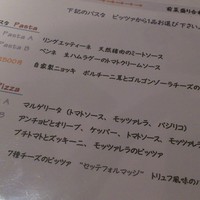 下記のパスタ ピッツァから1品お選び下さい。
Pasta
Pasta A リングエッティーネ 天然猪肉のミートソース
Pasta B ペンネ 生ハムラグーのトマトクリームソース
自家製ニョッキ ポルチーニ茸とゴルゴンゾーラチーズの
Pizza
A マルゲリータ (トマトソース、モッツァレラ、バジリコ)
アンチョビとオリーブ、ケッパー、トマトソース、モッツ
プチトマトとズッキーニ、モッツァレラのピッツァ
7種チーズのピッツァ "セッテフォルマッジ" トリュフ風味の